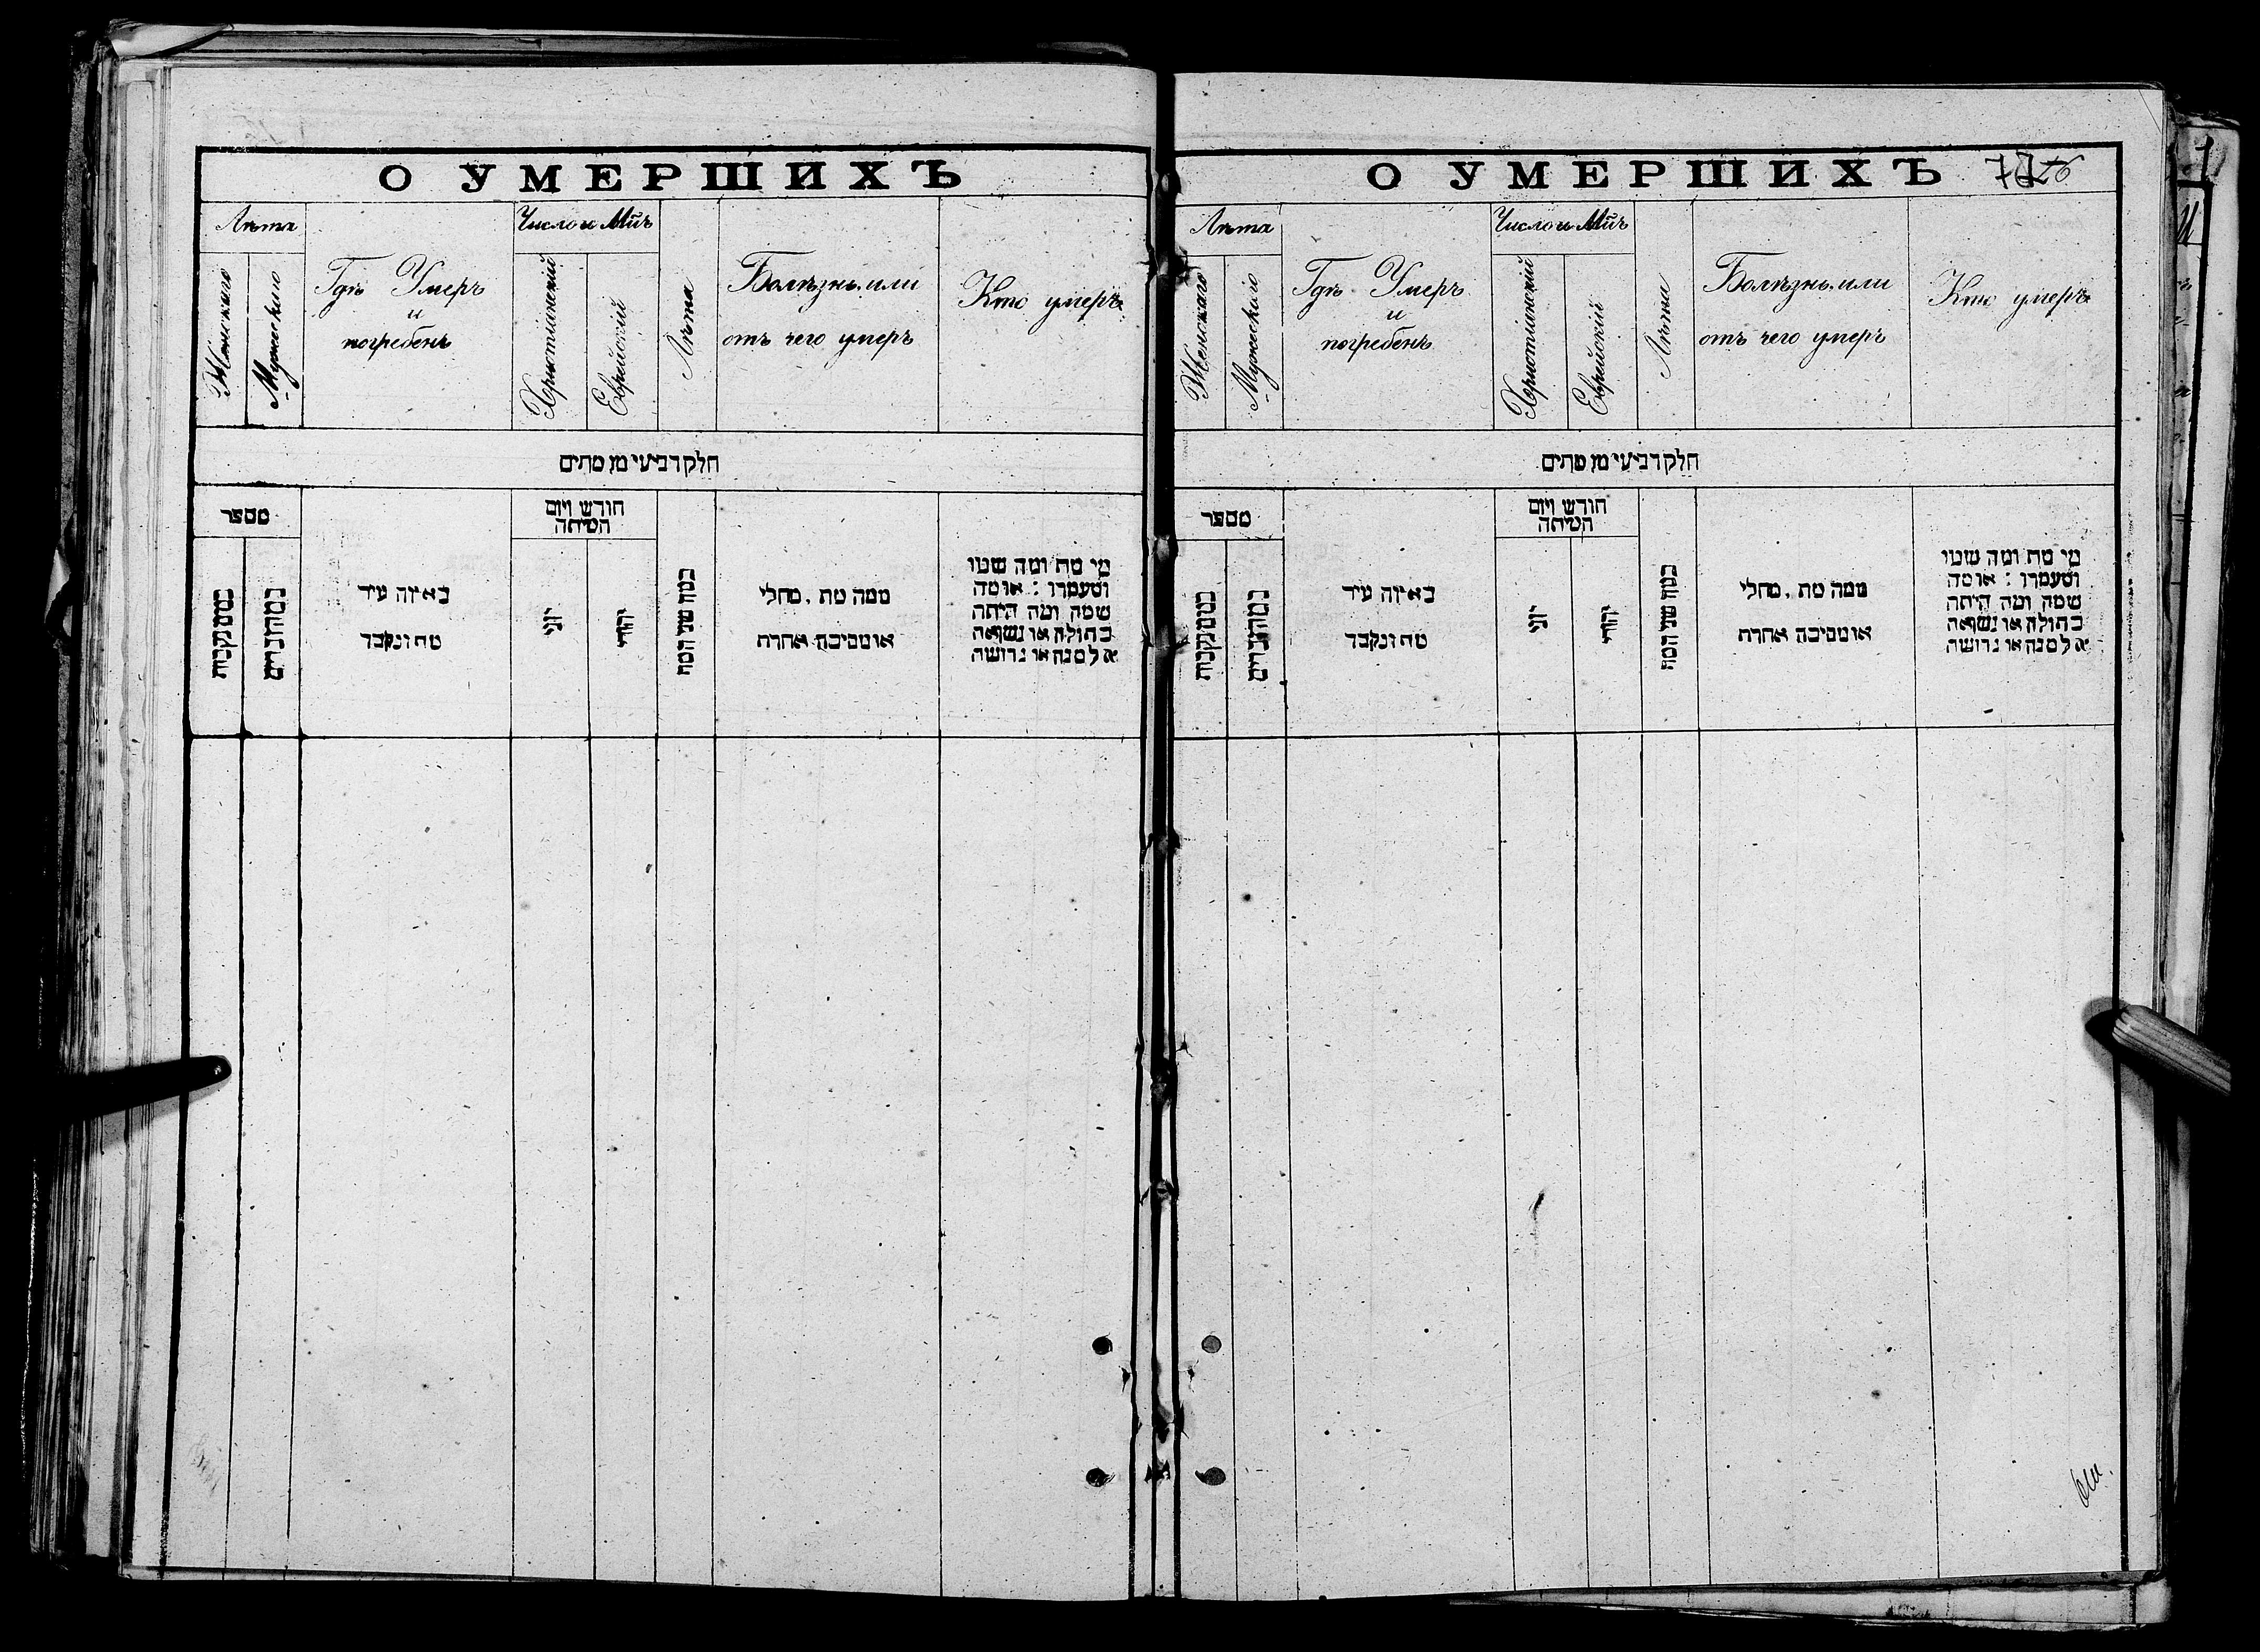 О УМЕРШИХЪ
Лѣта
Женскаго
Мужескаго
Гдѣ Умеръ
и
погребенъ
Число и Мц̃ъ
Христіанскій
Еврейскій
Лѣта
Болѣзнь или
отъ чего умеръ
Кто умеръ
חלק רביעי מן מתים
מספר
במס׳ נקבות
במס׳ זכרים
באיזה עיר
מת ונקבר
חודש ויום
המיתה
יוני
יהודי
כמה שני המת
ממה מת , מחלי
או מסיבה אחרת
מי מת ומה שמו
ומעמדו : או מה
שמה ומה היתה
בתולה או נשואה
אלמנה או גרושה
О УМЕРШИХЪ
Лѣта
Женскаго
Мужескаго
Гдѣ Умеръ
и
погребенъ
Число и Мц̃ъ
Христіанскій
Еврейскій
Лѣта
Болѣзнь или
отъ чего умеръ
Кто умеръ
חלק רביעי מן מתים
מספר
במס׳ נקבות
במס׳ זכרים
באיזה עיר
מת ונקבר
חודש ויום
המיתה
יוני
יהודי
כמה שני המת
ממה מת , מחלי
או מסיבה אחרת
מי מת ומה שמו
ומעמדו : או מה
שמה ומה היתה
בתולה או נשואה
אלמנה או גרושה